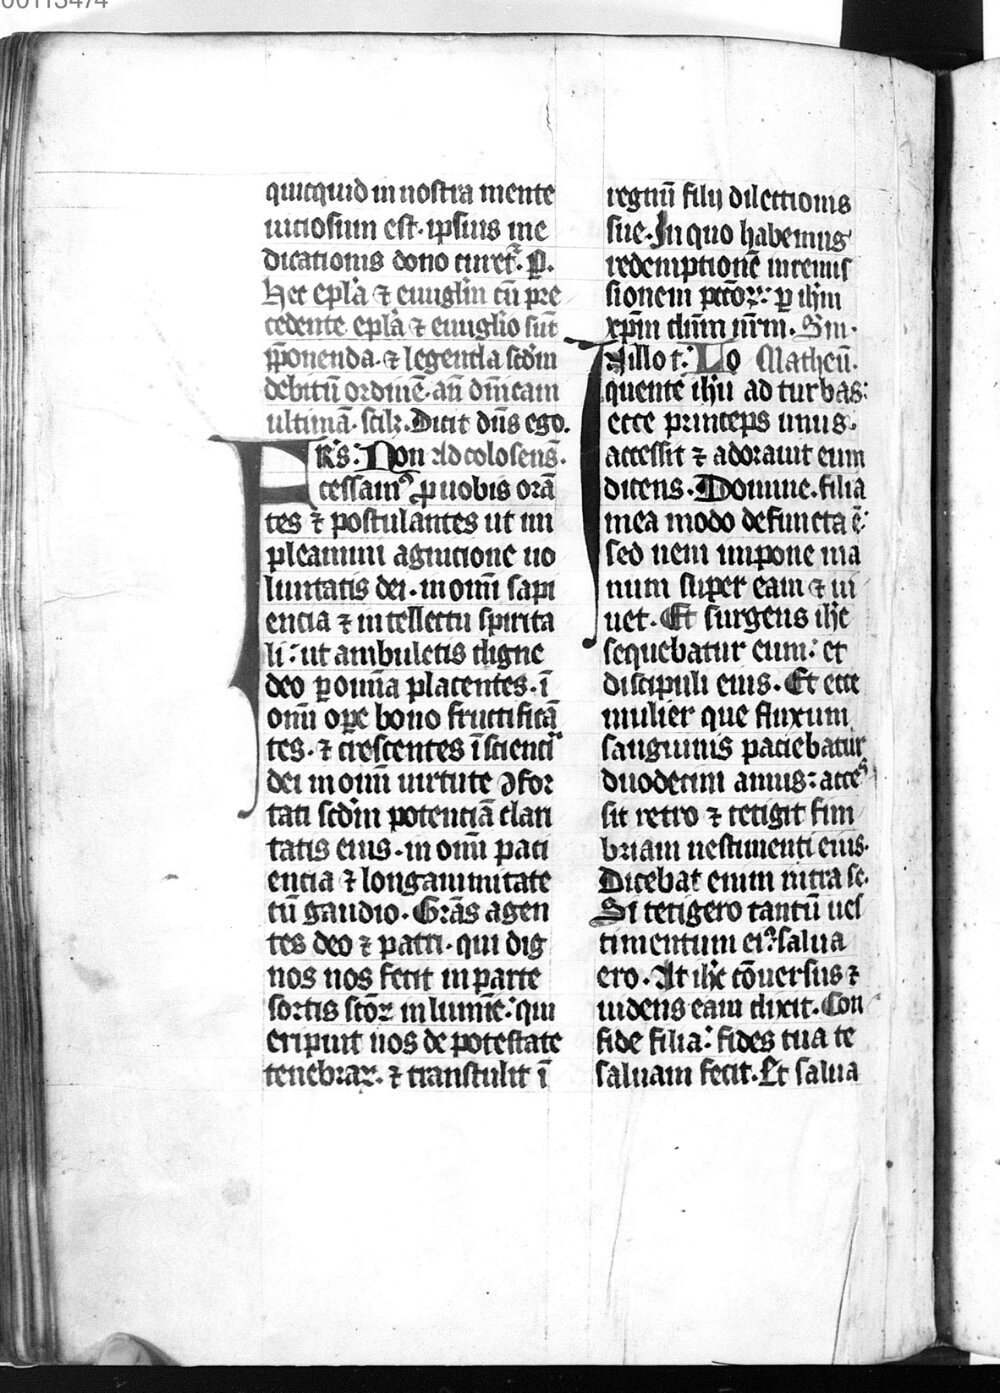 00113474
quicquid in nostra mente
uiciosum est. ipsius me
dicationis dono curet². P.
Hec epl̄a ⁊ euuglīn cū pre
cedente epl̄a ⁊ euuglio sūt
p̄ponenda. ⁊ legenda scd̄m
debitū ordinē. añ dn̄icam
ultimā. scilꝫ. Dicit dn̄s ego.
FRs: Non Ad colosens̄.
cessam⁹ ꝓ uobis orā
tes ⁊ postulantes ut im
pleamini agnicione uo
luntatis dei. in om̄i sapi
encia ⁊ intellectu spirita
li: ut ambuletis digne
deo ꝑ om̄ia placentes. ī
om̄i oꝑe bono fructificā
tes. ⁊ crescentes ī scienci
dei in om̄i uirtute ↄfor
tati scd̄m potenciā clari
tatis eius. in om̄i paci
encia ⁊ longanimitate
cū gaudio. Grās agen
tes deo ⁊ patri. qui dig
nos nos fecit in parte
sortis sc̄oꝝ in lumīe: qui
eripuit nos de potestate
tenebraꝝ. ⁊ transtulit ī
regnū filij dilectionis
sue. In quo habemus
redemptionē in remis
sionem pcc̄oꝝ: ꝑ ih̄m
xp̄m dn̄m nr̄m. Sm̄.
In illo t: Lo Matheū.
quente ih̄u ad turbas:
ecce princeps unus.
accessit ⁊ adorauit eum
dicens. Domine. filia
mea modo defuncta ē:
sed ueni impone ma
num super eam ⁊ ui
uet. Et surgens ih̄c
sequebatur eum: et
discipuli eius. Et ecce
mulier que fluxum
sanguinis paciebatur
duodecim annis: acces
sit retro ⁊ tetigit fim
briam uestimenti eius.
Dicebat enim intra se.
Si tetigero tantū ues
timentum ei⁹: salua
ero. At ih̄c cōuersus ⁊
uidens eam dixit. Con
fide filia: fides tua te
saluam fecit. Et salua